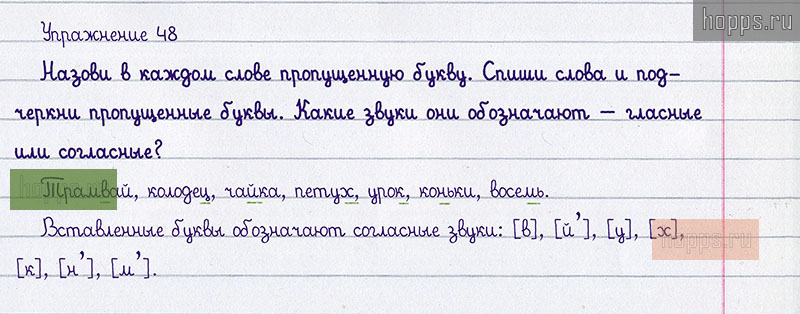 hopps.ru
Упражнение 48
Назови в каждом слове пропущенную букву. Спиши слова и под-
черкни пропущенные буквы. Какие звуки они обозначают – гласные
или согласные?
Трамвай, колодец, чайка, петух, урок, коньки, восемь.
Вставленные буквы обозначают согласные звуки: [в], [й’], [ц], [х],
hopps.ru
[к], [н’], [м’].